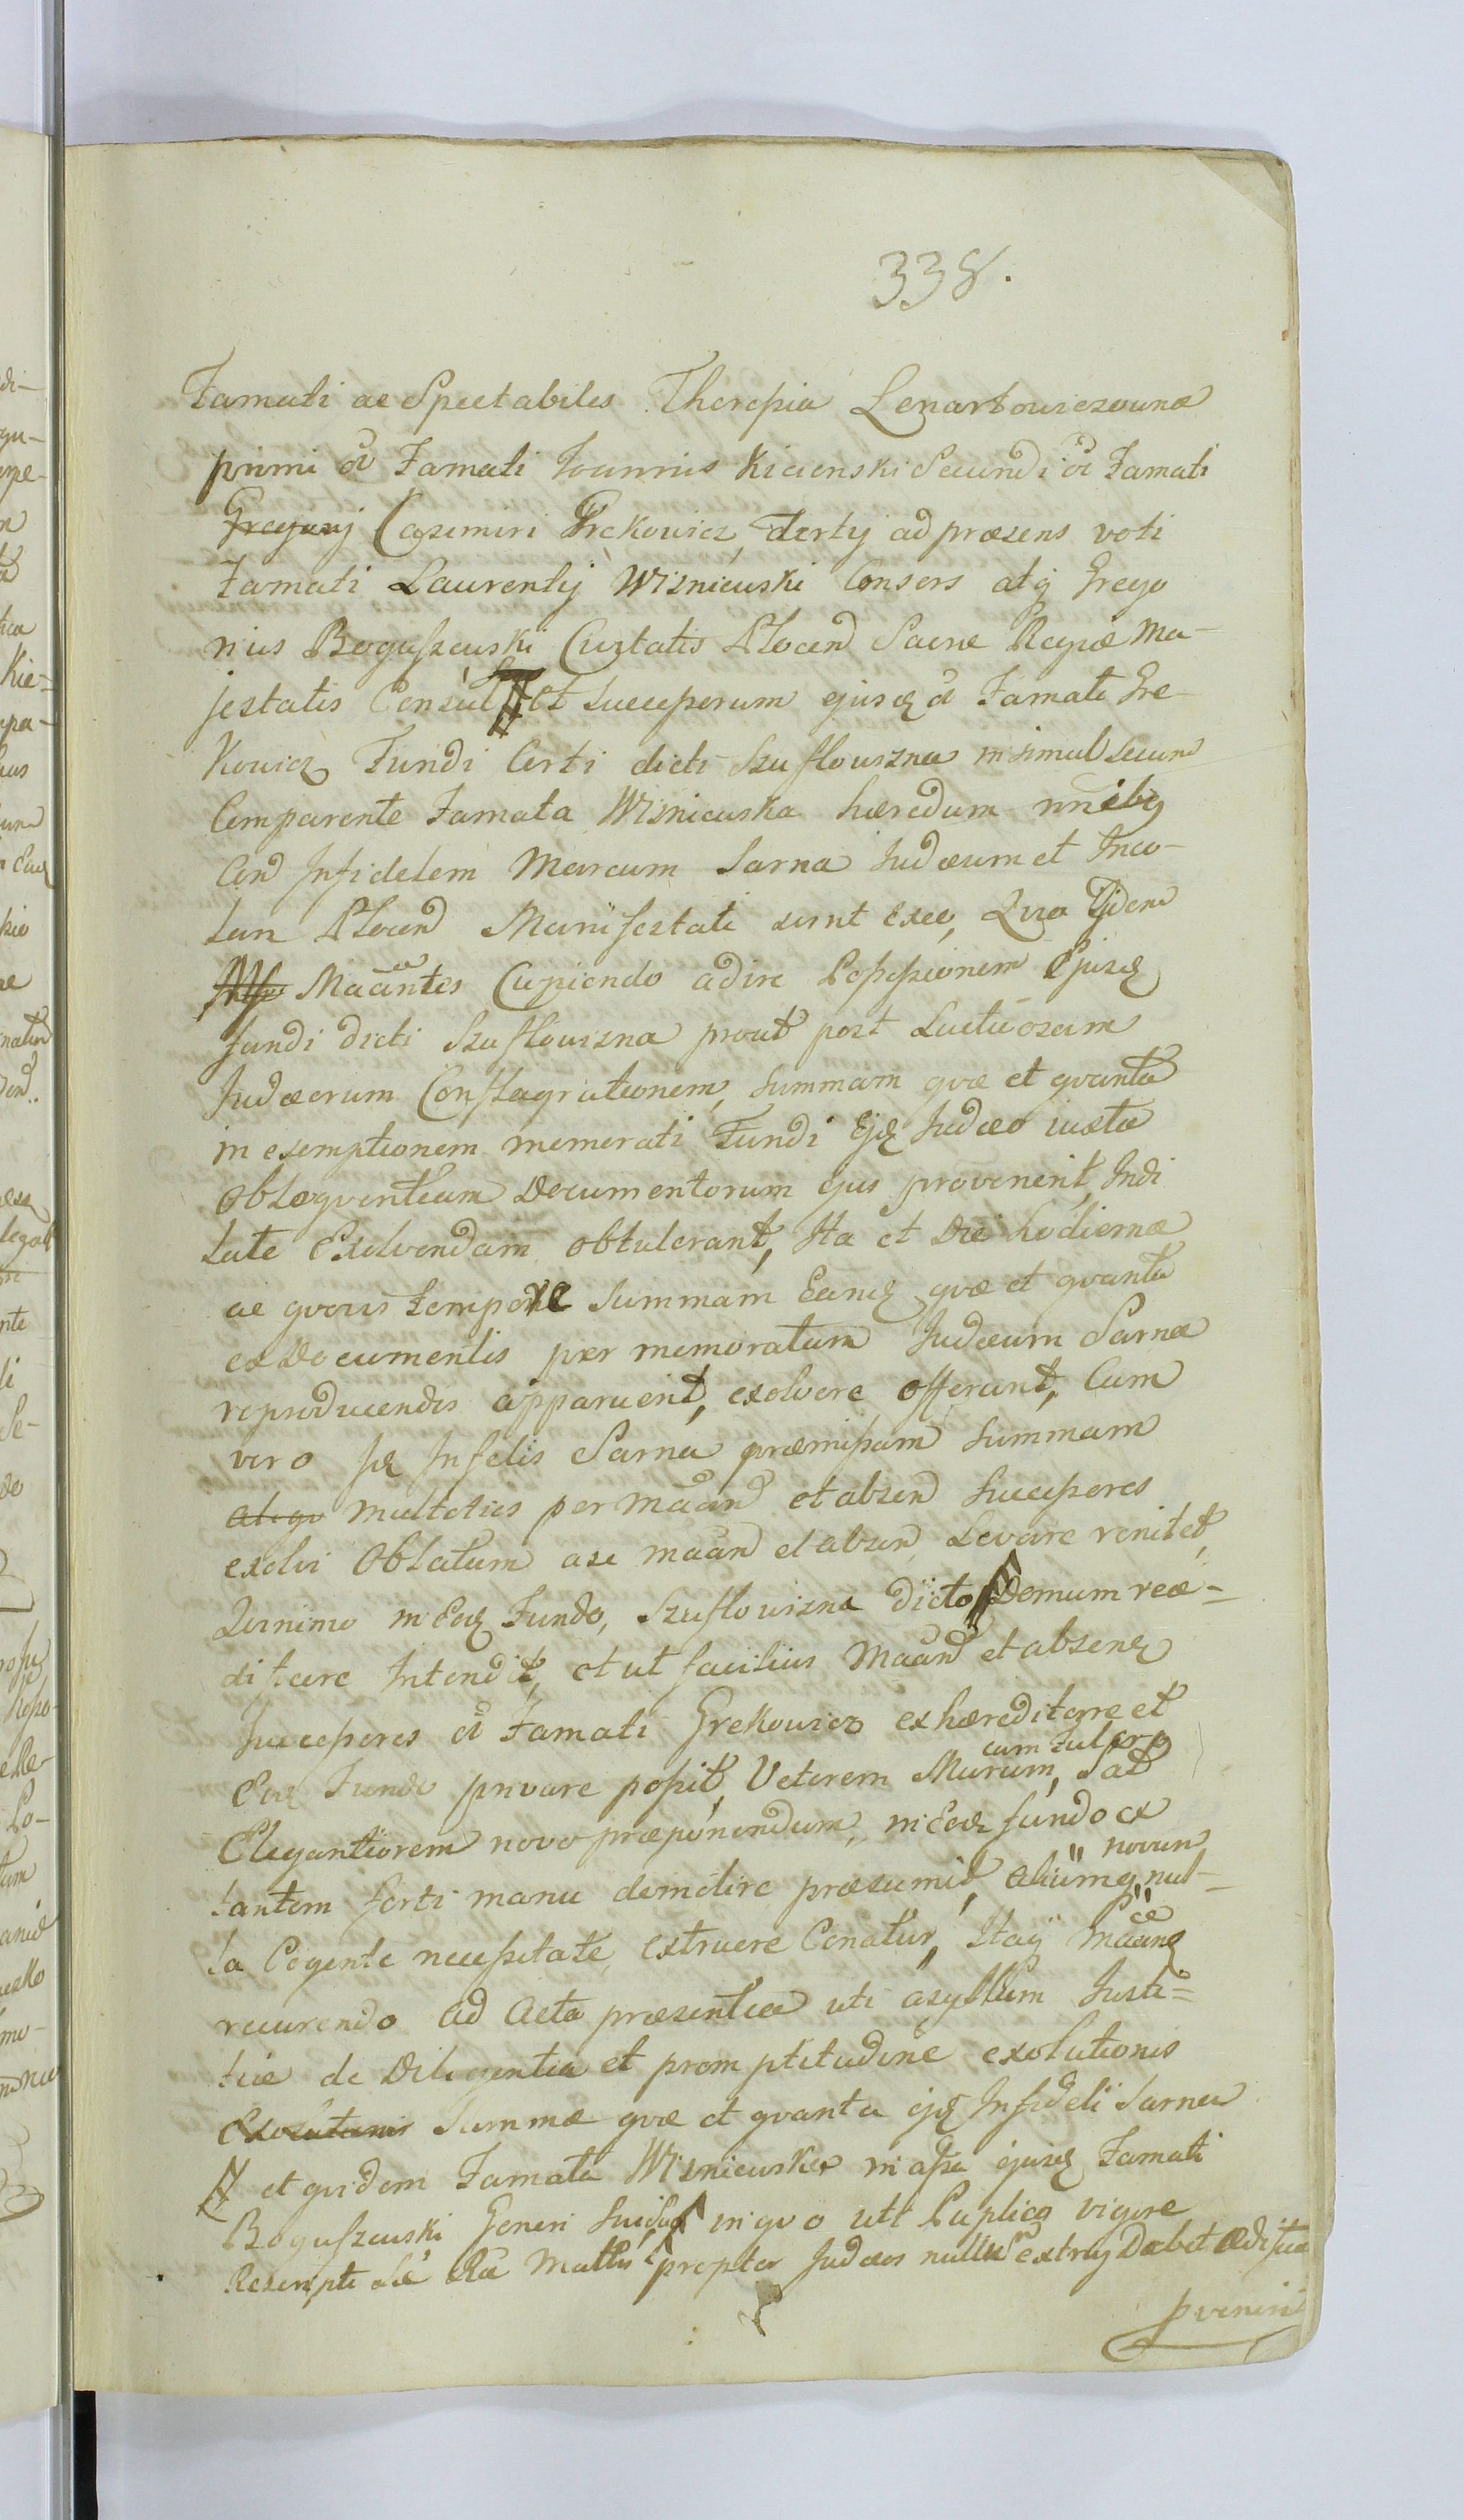 338.
Famati ac Spectabiles Theresia Lenartowiczowna
primi õ Famati Joannis Kicienski Secundi õ Famati
Gregorij Casimiri Grekowicz, Tertij ad præsens voti
Famati Laurentij Wisniewski Consors atq Grego
rius Boguszewski Civitatis Plocen Sacræ Regiæ Ma-
jestatis Consul et Successorum ejusq õ Famati Gre-
kowicz Fundi Certi dicti Szuflowizna insimul secum
Comparente Famata Wisniewska hæredum nñibq
Con Infidelem Marcum Sarna Judæum et Inco-
lam Plocen Manifestati sunt Exee, Quia Ijdem
Maãntes Cupiendo adire Possessionem Ejusq
fundi dicti Szuflowizna prout post Luctuosam
Judæorum Conflagrationem, Summam quæ et quanta
in exemptionem memorati Fundi Ejq Judæo iuxta
obloquentiam Documentorum ejus provenerit, Indi
late Exolvendam obtulerant, Ita et Die hodierna
ac quovis tempore Summam Eamq quæ et quanta
ex Documentis per memoratum Judæum Sarna
reproducendis apparuerit, exolvere offerunt, Cum
vero Iq Infelis Sarna præmissam Summam
multoties per Maãn et absen Successores
exolvi Oblatam a se maãn et absen, Levare renitet,
Quinimo in Eoq Fundo, Szuflowizna dicto Domum reæ-
dificare Intendit, et ut facilius Maãn et absenq
Successores õ Famati Grekowicz exhæreditare et
cum zulpro
Eoq Fundo privare possit, Veterem Murum, Sat
Elegantiorem novo præponendum, in Eoq fundo ex
novum
tantem forti manu demolire præsumit, aliumq nul-
la Cogente necessitate, extruere Conatur, Itaq Maãnq
recurendo ad Acta præsentia uti asyllum Justi=
tiæ de Diligentia et promptitudine exolutionis
Exolutionis Summæ quæ et quanta ejq Infideli Sarna
et quidem Famata Wisniewska in assa ejusq Famati
Boguszewski Generi sui in quo uti Puplico vigore
Rescripti Sæ Ræ Mattis propter Judæos nullu extruj Debet ædificia
pveniri